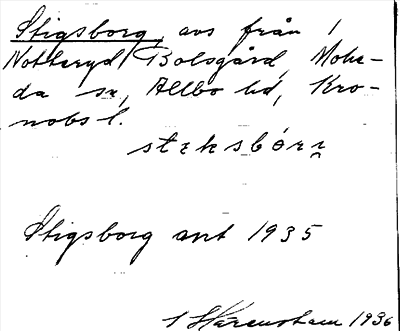 Stigsborg, avs från 1
Notteryd Bolsgård, Mohe-
da sn, Allbo hd, Kro-
nobs l.
stɛksbórı̯
Stigsborg ant 1935
1936